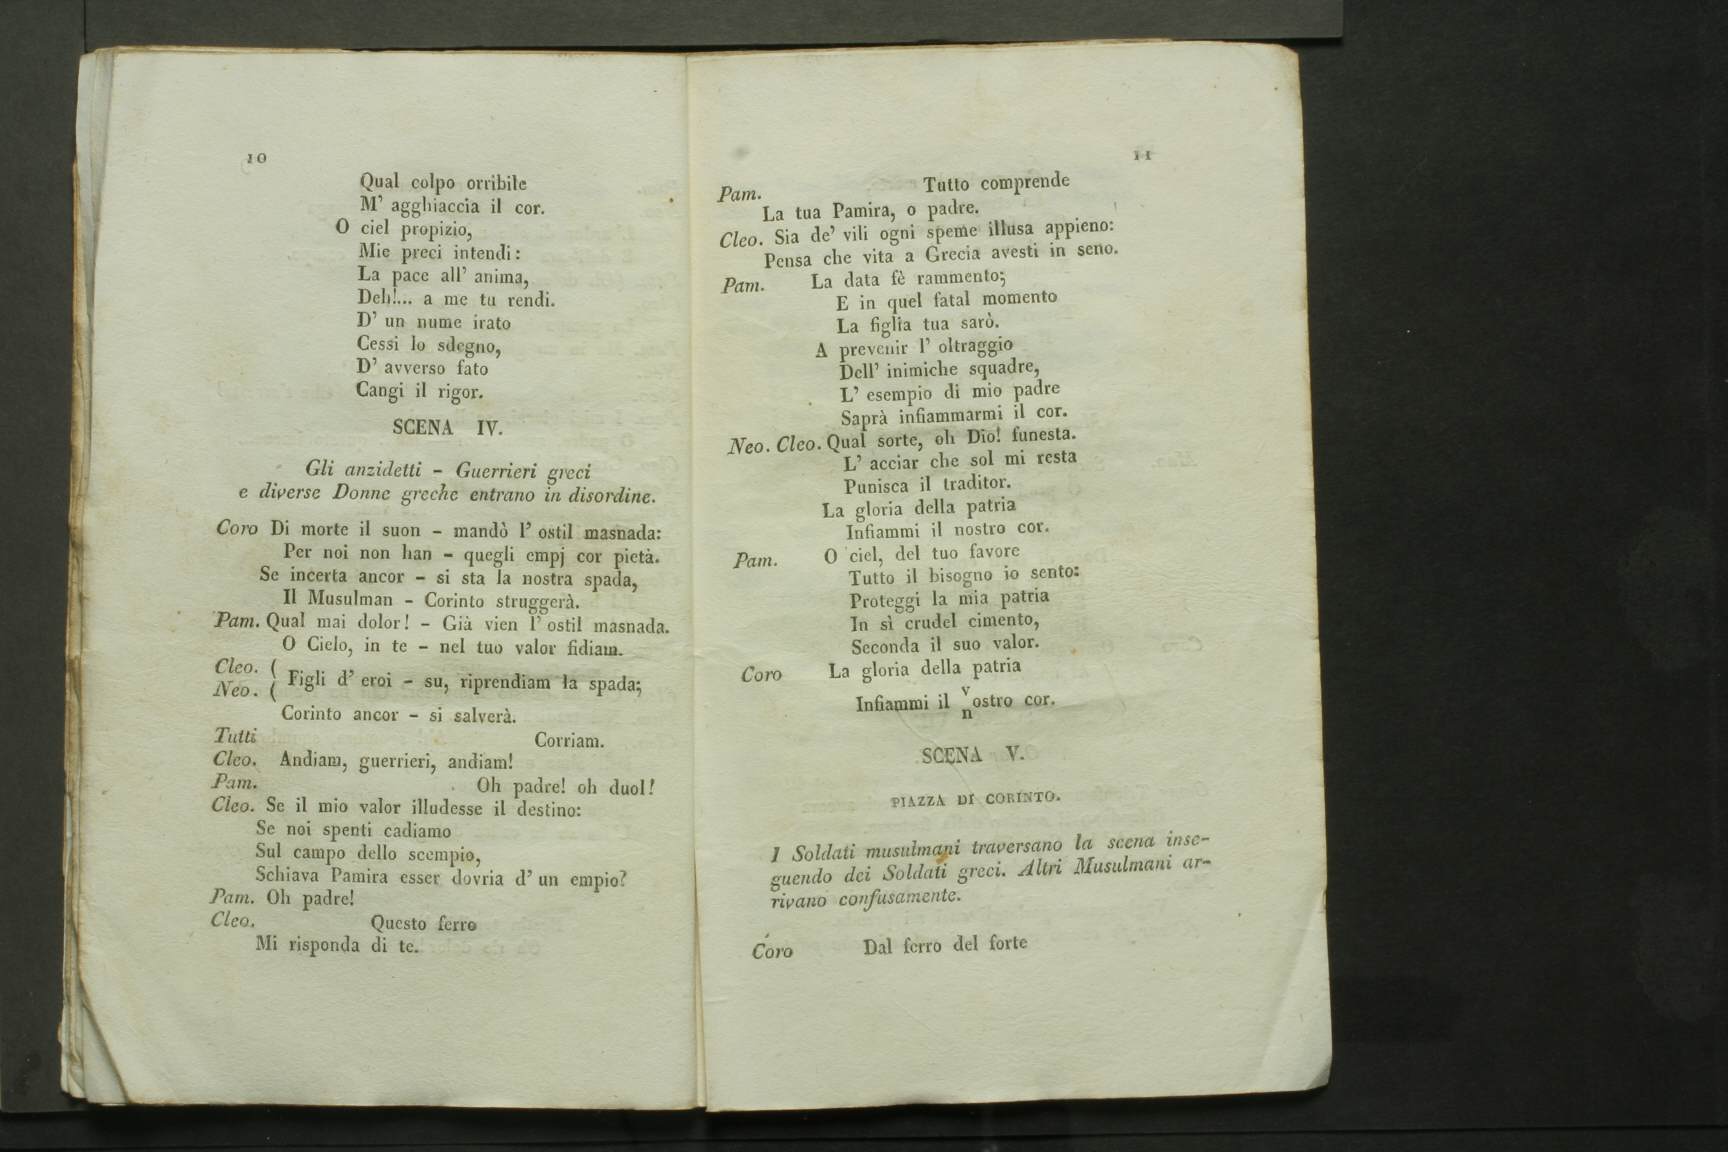 10
Qual colpo orribile
M' agghiaccia il cor.
O ciel propizio,
Mie preci intendi:
La pace all' anima,
Deh!... a me tu rendi.
D' un nume irato
Cessi lo sdegno,
D' avverso fato
Cangi il rigor.
SCENA IV.
Gli anzidetti - Guerrieri greci
e diverse Donne greche entrano in disordine.
Coro Di morte il suon - mandò l' ostil masnada:
Per noi non han - quegli empj cor pietà.
Se incerta ancor - si sta la nostra spada,
Il Musulman - Corinto struggerà.
Pam. Qual mai dolor! - Già vien l' ostil masnada.
O Cielo, in te - nel tuo valor fidiam.
Cleo. (
Neo. ( Figli d' eroi - su, riprendiam la spada;
Corinto ancor - si salverà.
Tutti Corriam.
Cleo. Andiam, guerrieri, andiam!
Pam. Oh padre! oh duol!
Cleo. Se il mio valor illudesse il destino:
Se noi spenti cadiamo
Sul campo dello scempio,
Schiava Pamira esser dovria d' un empio?
Pam. Oh padre!
Cleo. Questo ferro
Mi risponda di te.
11
Pam. Tutto comprende
La tua Pamira, o padre.
Cleo. Sia de' vili ogni speme illusa appieno:
Pensa che vita a Grecia avesti in seno.
Pam. La data fè rammento;
E in quel fatal momento
La figlia tua sarò.
A prevenir l' oltraggio
Dell' inimiche squadre,
L' esempio di mio padre
Saprà infiammarmi il cor.
Neo. Cleo. Qual sorte, oh Dio! funesta.
L' acciar che sol mi resta
Punisca il traditor.
La gloria della patria
Infiammi il nostro cor.
Pam. O ciel, del tuo favore
Tutto il bisogno io sento:
Proteggi la mia patria
In sì crudel cimento,
Seconda il suo valor.
Coro La gloria della patria
v
Infiammi il ostro cor.
n
SCENA V.
PIAZZA DI CORINTO.
I Soldati musulmani traversano la scena inse-
guendo dei Soldati greci. Altri Musulmani ar-
rivano confusamente.
Coro Dal ferro del forte